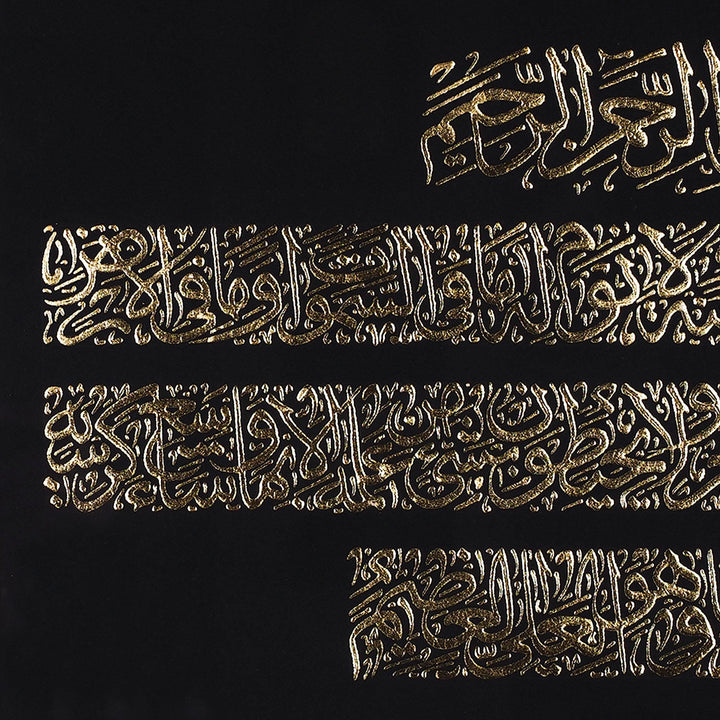 الرحمن الرحيم
لا نوم له ما في السموات وما في الارض
ولا يحيطون بشيء من علمه الا بما شاء وسع كرسيه
وهو العلي العظيم